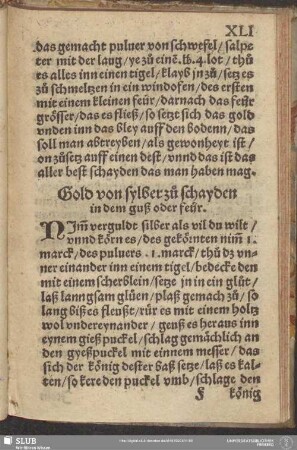 XLI
das gemacht puluer von schwefel / salpe
ter mit der laug / ye zů einẽ. lb. 4. lot / thů
es alles inn einen tigel / klayb jn zů / setz es
zů schmeltzen in ein windofen / des ersten
mit einem kleinen feür / darnach das feür
grösser / das es fließ / so setzt sich das gold
vnden inn das bley auff den bodenn / das
soll man abtreyben / als gewonheyt ist /
on zůsetz auff einen test / vnnd das ist das
aller best schayden das man haben mag.
Gold von sylber zů schayden
in dem guß oder feür.
NIm̃ verguldt silber als vil du wilt /
vnnd körn es / des gekörnten nim̃ 1.
marck / des puluers .1. marck / thů dz vn-
ner einander inn einem tigel / bedecke den
mit einem scherblein / setze jn in ein glůt /
laß lanngsam glüen / plaß gemach zů / so
lang biß es fleußt / rür es mit einem holtz
wol vndereynander / geuß es heraus inn
eynem gieß puckel / schlag gemächlich an
den gyeßpuckel mit einnem messer / das
sich der könig dester baß setze / laß es kal-
ten / so kere den puckel vmb / schlage den
f könig
SLUB
Wir führen Wissen.